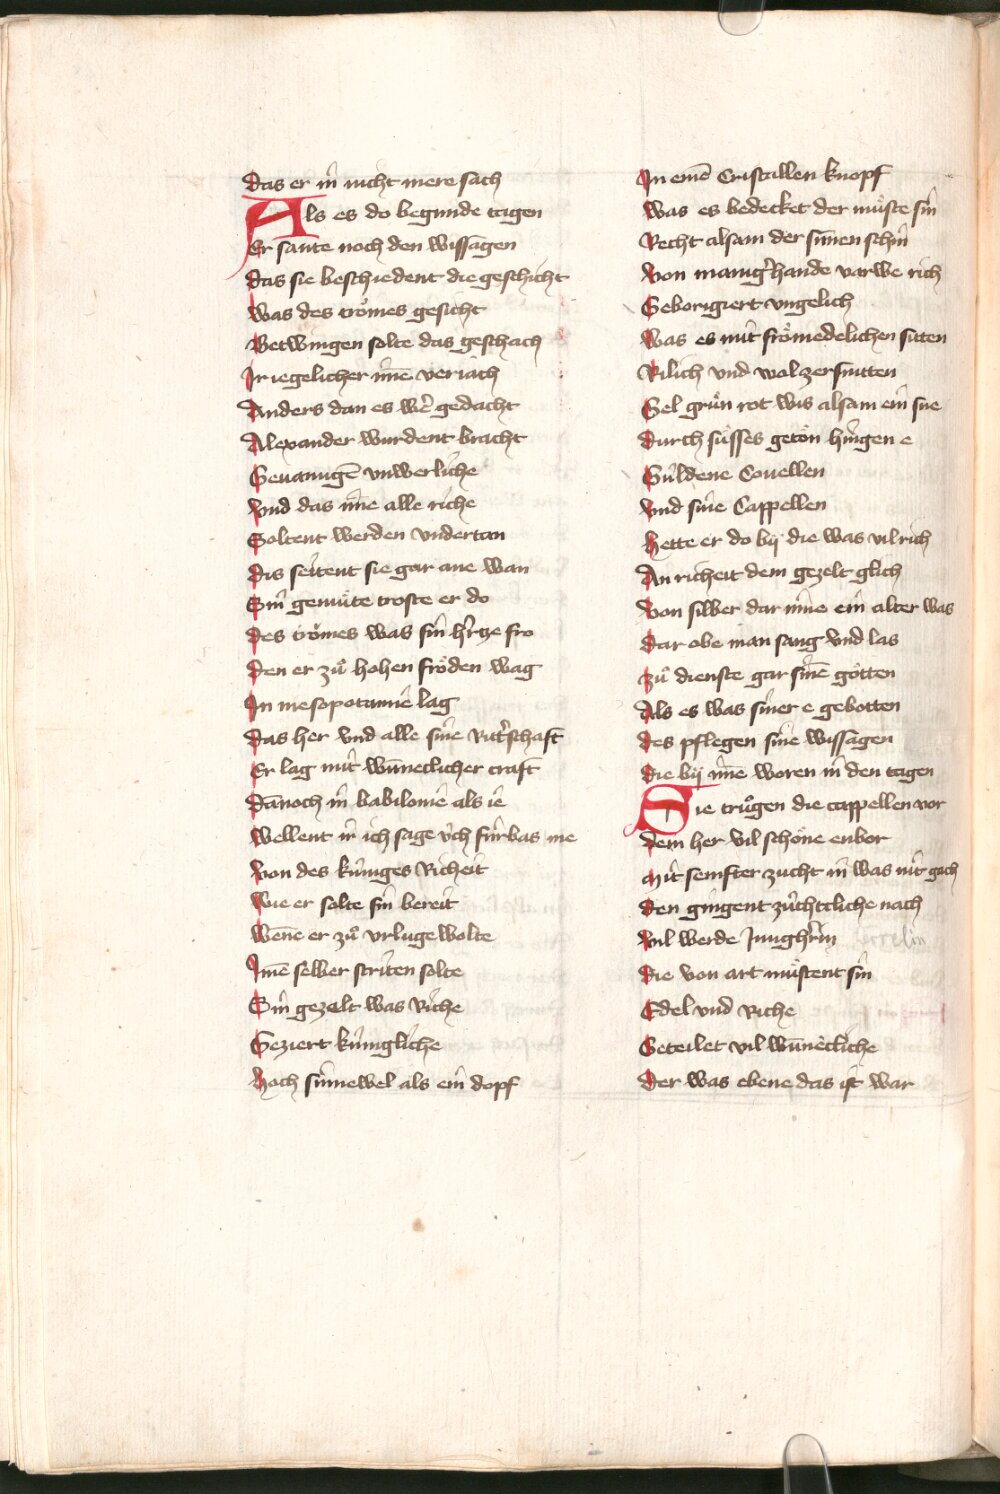 das er in nicht mere sach
Als es do begunde tagen
Er sante noch den wissagen
das sie beschiedent die geschicht
Was des troͤmes gesicht
Betwingen solte das geschach
Ir iegelicher im̄e veriach
Anders dan es wer gedacht
Alexander wurdent bracht
Geuanngē vnwerliche
Vnd das im̄e alle riche
Soltent werden vndertan
dis seitent sie gar ane wan
Sin gemuͤte troste er do
des troͤmes was sin h'tze fro
den er zuͦ hohen froͤden wag
In mesopotamie lag
das her vnd alle sine Ritt'schaft
Er lag mit wun̄eclicher craft
Dan̄och in babilonie als ie
Wellent ir ich sage vch furbas me
Von des kuniges Richeit
Wie er solte sin bereit
Wen̄e er zuͦ vrluge wolte
Im̄e selber striten solte
Sin gezelt was Riche
Geziert kunigliche
Hoch sinewel als ein dopf
In einē Cristallen knopf
Was es bedecket der muͤste sin
Recht alsam der sun̄en schin
Von manig'hande varwe rich
Geborigiert vngelich
Was es mit froͤmedelichen sitten
Rilich vnd wol zersnitten
Gel gruͤn rot wis alsam ein sne
durch suͤsses getoͤn hingen e
Guldene Couellen
Vnd sine Cappellen
Hette er do bij die was vil rich
An richeit dem gezelt glich
Von silber dar inne ein alter was
Dar obe man sang vnd las
Zuͦ dienste gar sinē goͤtten
Als es was siner e gebotten
des pflegen sine wissagen
die bij im̄e woren in den tagen
Sie truͦgen die cappellen vor
dem her vil schoͤne enbor
Mit semfter zucht in was nit goch
den gingent zuchtcliche nach
Vil werde Jungh'rin
die von art muͤstent sin
Edel vnd Riche
Geteilet vil wun̄ecliche
Der was ebene das ist war